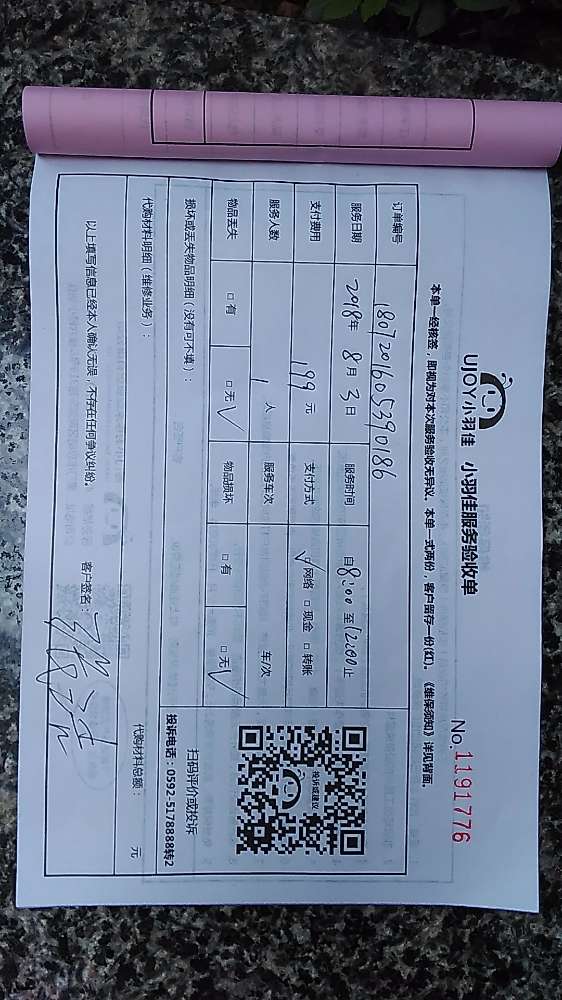 UJOY小羽佳 小羽佳服务验收单
No. 1191776
本单一经核签，即视为对本次服务验收无异议。本单一式两份，客户留存一份(红)。《维保须知》详见背面。
订单编号 180720160539 0186
服务日期 2018年 8月 3日 服务时间 自8:00 至12:00止
支付费用 199 元 支付方式 ☑网络 □现金 □转账
服务人数 1 人 服务车次 车/次
物品丢失 □有 □无√ 物品损坏 □有 □无√
投诉或建议
扫码评价或投诉
投诉电话：0592-5178888转2
损坏或丢失物品明细（没有可不填）：
代购材料明细（维修业务）： 代购材料总额： 元
以上填写信息已经本人确认无误，不存在任何争议纠纷。 客户签名：